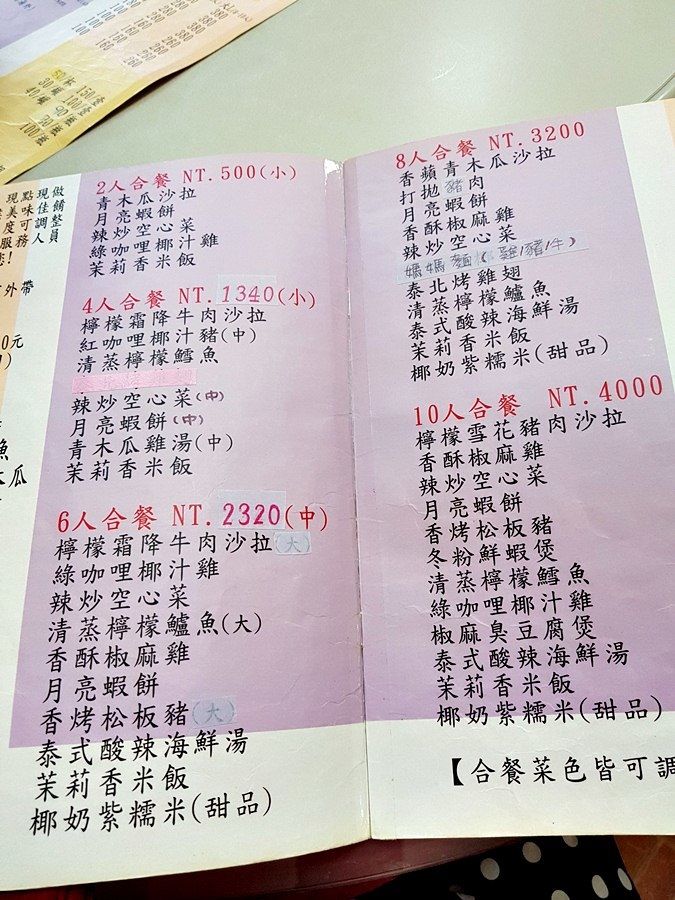 2人合餐 NT.500(小)
青木瓜沙拉
月亮蝦餅
辣炒空心菜
綠咖哩椰汁雞
茉莉香米飯
4人合餐 NT.1340(小)
檸檬霜降牛肉沙拉
紅咖哩椰汁豬(中)
清蒸檸檬鱈魚
辣炒空心菜(中)
月亮蝦餅(中)
青木瓜雞湯(中)
茉莉香米飯
6人合餐 NT.2320(中)
檸檬霜降牛肉沙拉(大)
綠咖哩椰汁雞
辣炒空心菜
清蒸檸檬鱸魚(大)
香酥椒麻雞
月亮蝦餅
香烤松板豬(大)
泰式酸辣海鮮湯
茉莉香米飯
椰奶紫糯米(甜品)
8人合餐 NT.3200
香蘋青木瓜沙拉
打拋豬肉
月亮蝦餅
香酥椒麻雞
辣炒空心菜
媽媽麵(雞/豬/牛)
泰北烤雞翅
清蒸檸檬鱸魚
泰式酸辣海鮮湯
茉莉香米飯
椰奶紫糯米(甜品)
10人合餐 NT.4000
檸檬雪花豬肉沙拉
香酥椒麻雞
辣炒空心菜
月亮蝦餅
香烤松板豬
冬粉鮮蝦煲
清蒸檸檬鱈魚
綠咖哩椰汁雞
椒麻臭豆腐煲
泰式酸辣海鮮湯
茉莉香米飯
椰奶紫糯米(甜品)
【合餐菜色皆可調